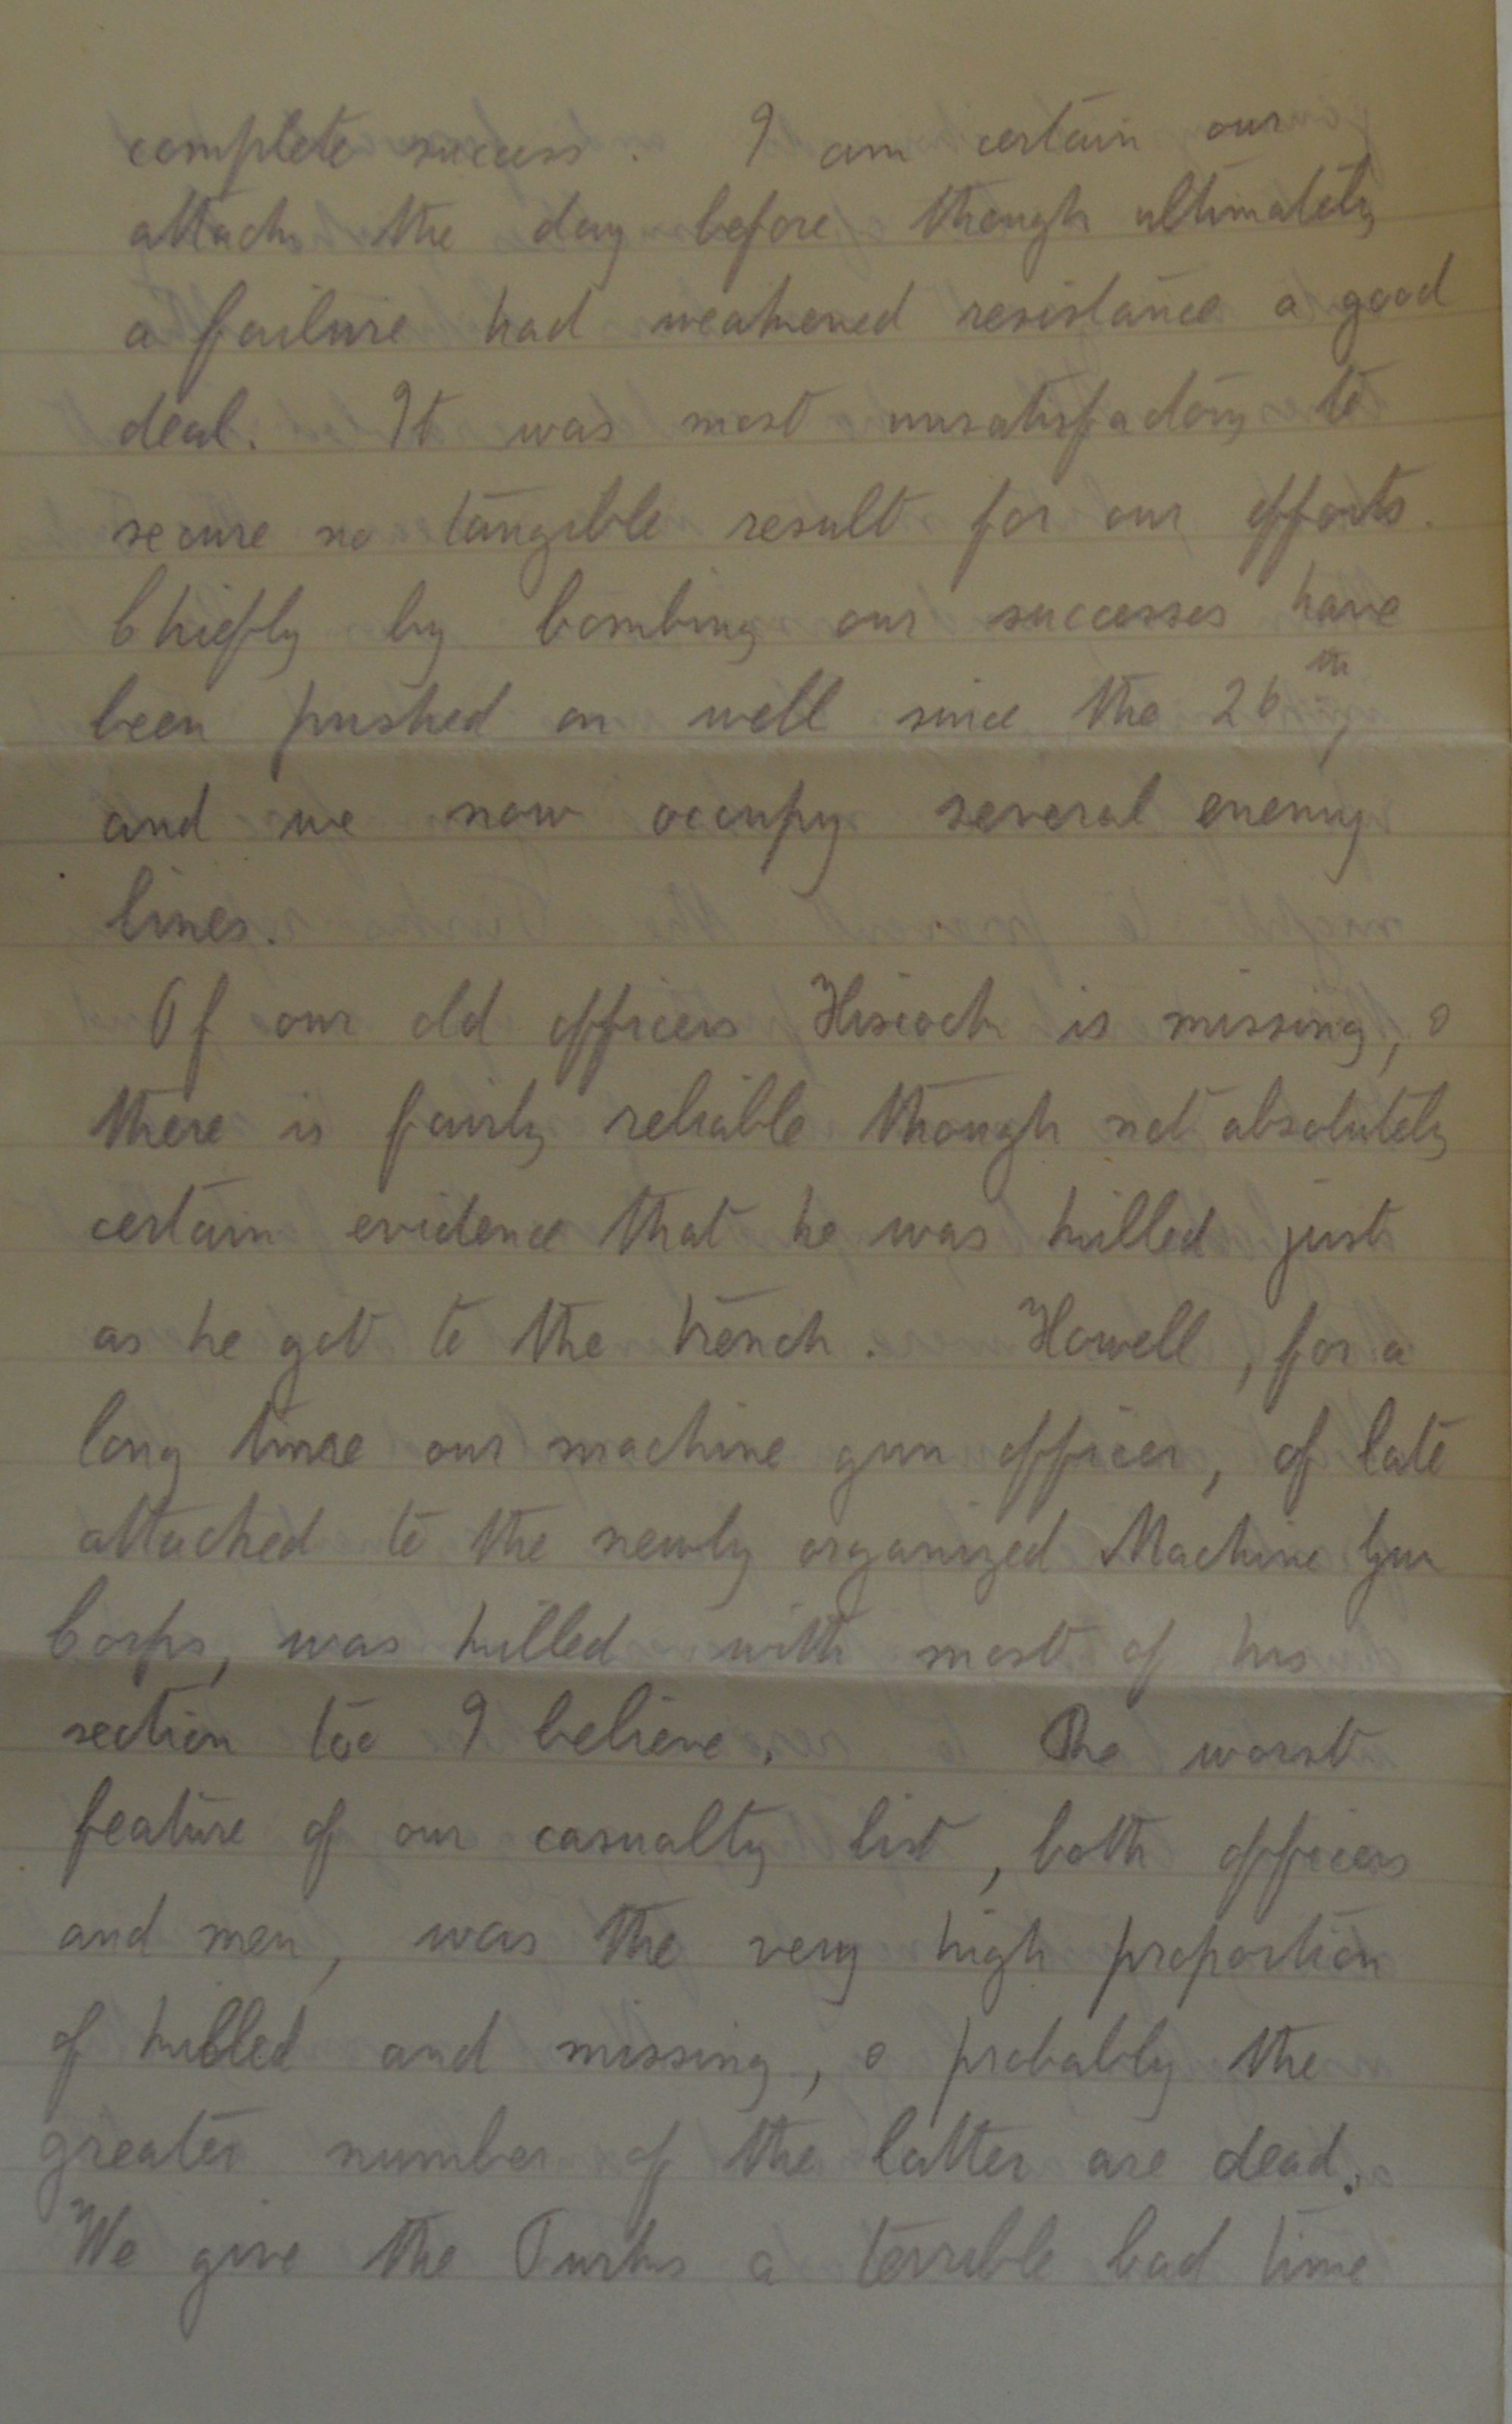 complete success. I am certain our
attack the day before though ultimately
a failure had weakened resistance a good
deal. It was most unsatisfactory to
secure no tangible result for our efforts.
Chiefly by bombing our successes have
been pushed on well since the 26th,
and we now occupy several enemy
lines.
Of our old officers Hiscock is missing, &
there is fairly reliable though not absolutely
certain evidence that he was killed just
as he got to the trench. Howell, for a
long time our machine gun officer, of late
attached to the newly organized Machine Gun
Corps, was killed with most of his
section too I believe. The worst
feature of our casualty list, both officers
and men, was the very high proportion
of killed and missing, & probably the
greater number of the latter are dead.
We give the Turks a terrible bad time